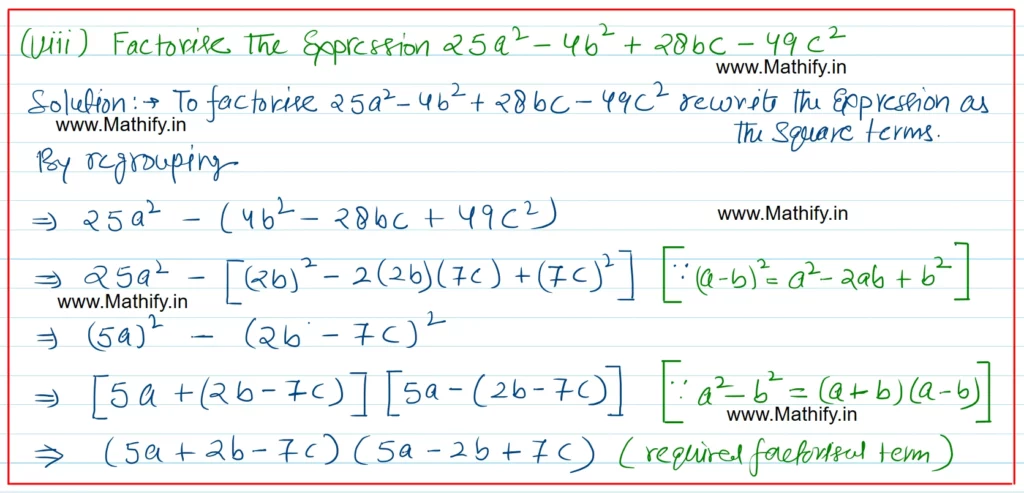 (viii) Factorise the Expression 25a² - 4b² + 28bc - 49c²
www.Mathify.in
Solution:→ To factorise 25a² - 4b² + 28bc - 49c² rewrite the Expression as
www.Mathify.in
the square terms.
By regrouping
⇒ 25a² - (4b² - 28bc + 49c²)
www.Mathify.in
⇒ 25a² - [(2b)² - 2(2b)(7c) + (7c)²] [∵ (a-b)² = a² - 2ab + b²]
www.Mathify.in
⇒ (5a)² - (2b - 7c)²
⇒ [5a + (2b - 7c)] [5a - (2b - 7c)] [∵ a² - b² = (a+b)(a-b)]
www.Mathify.in
⇒ (5a + 2b - 7c) (5a - 2b + 7c) (required factorised term)